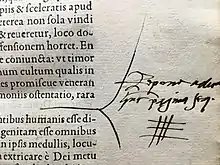 ppiis & sceleratis apud
terrea non sola vindi
& reueretur, loco do
sensionem horret. En
e coniuncta: vt timor
num cultum qualis in
es promiscue veneran
moniis ostentatio, rara
ntibus humanis esse di
igenitam esse omnibus
in ipsis medullis, locu
extricare è Dei metu